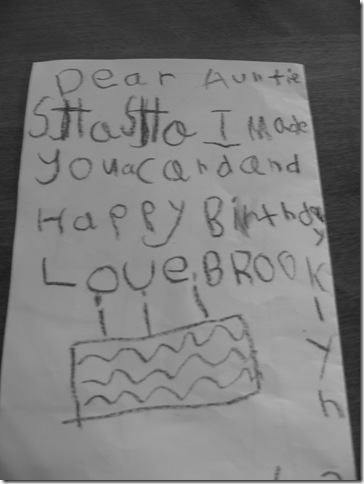 Dear Auntie
SHaSHa I Made
you a Card and
Happy Birthday
Love BROOKlyn